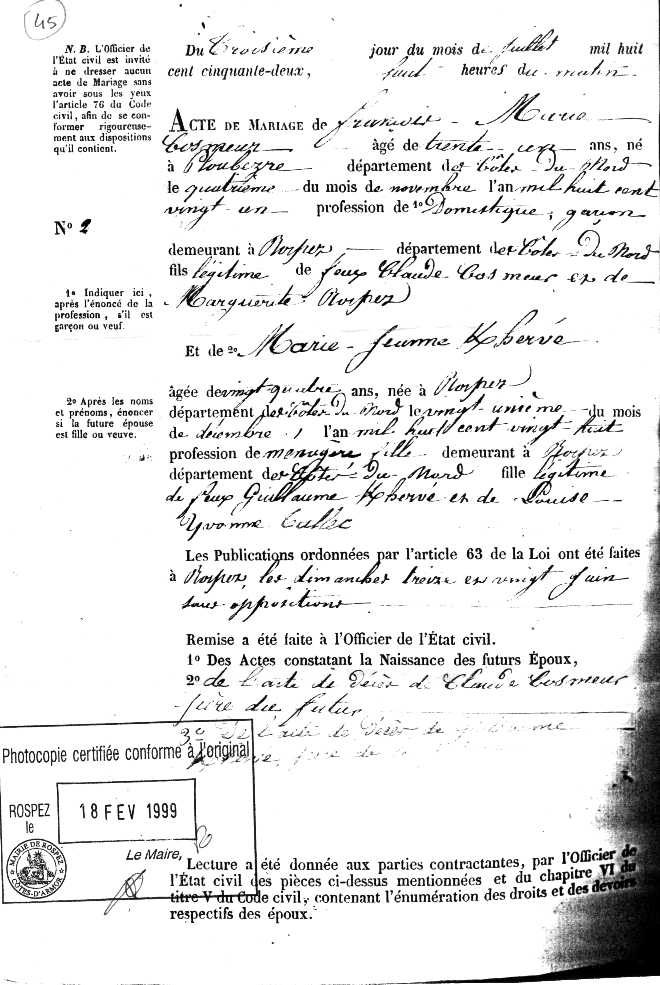 45
N. B. L'Officier de
l'État civil est invité
à ne dresser aucun
acte de Mariage sans
avoir sous les yeux
l'article 76 du Code
civil, afin de se con-
former rigoureuse-
ment aux dispositions
qu'il contient.
Nº 2
1º Indiquer ici,
après l'énoncé de la
profession, s'il est
garçon ou veuf.
2º Après les noms
et prénoms, énoncer
si la future épouse
est fille ou veuve.
Du troisième jour du mois de juillet mil huit
cent cinquante-deux, heures du matin
ACTE DE MARIAGE de françois - Marie
Cosmeur âgé de trente un ans, né
à Ploubezre département des Côtes Du Nord
le quatrième du mois de novembre l'an mil huit cent
vingt un profession de 1º Domestique, garçon
demeurant à Rospez département des Côtes Du Nord
fils légitime de feux Claude Cosmeur et de
Marguerite Rospez
Et de 2º Marie-Jeanne Khervé
âgée de vingt quatre ans, née à Rospez
département des Côtes Du Nord le vingt unième du mois
de décembre l'an mil huit cent vingt huit
profession de menagère fille demeurant à Rospez
département des Côtes Du Nord fille légitime
de feux Guillaume Khervé et de Louise
Yvonne
Les Publications ordonnées par l'article 63 de la Loi ont été faites
à Rospez, les dimanches treize et vingt juin
sans oppositions
Remise a été faite à l'Officier de l'État civil.
1º Des Actes constatant la Naissance des futurs Époux,
2º de l'acte de décès de Claude Cosmeur
père du futur
3º De l'acte de décès de guillaume
père de
Photocopie certifiée conforme à l'original
ROSPEZ
le
18 FEV 1999
Le Maire,
MAIRIE DE ROSPEZ
CÔTES-D'ARMOR
Lecture a été donnée aux parties contractantes, par l'Officier de
l'État civil des pièces ci-dessus mentionnées et du chapitre VI du
titre V du Code civil, contenant l'énumération des droits et des devoirs
respectifs des époux.